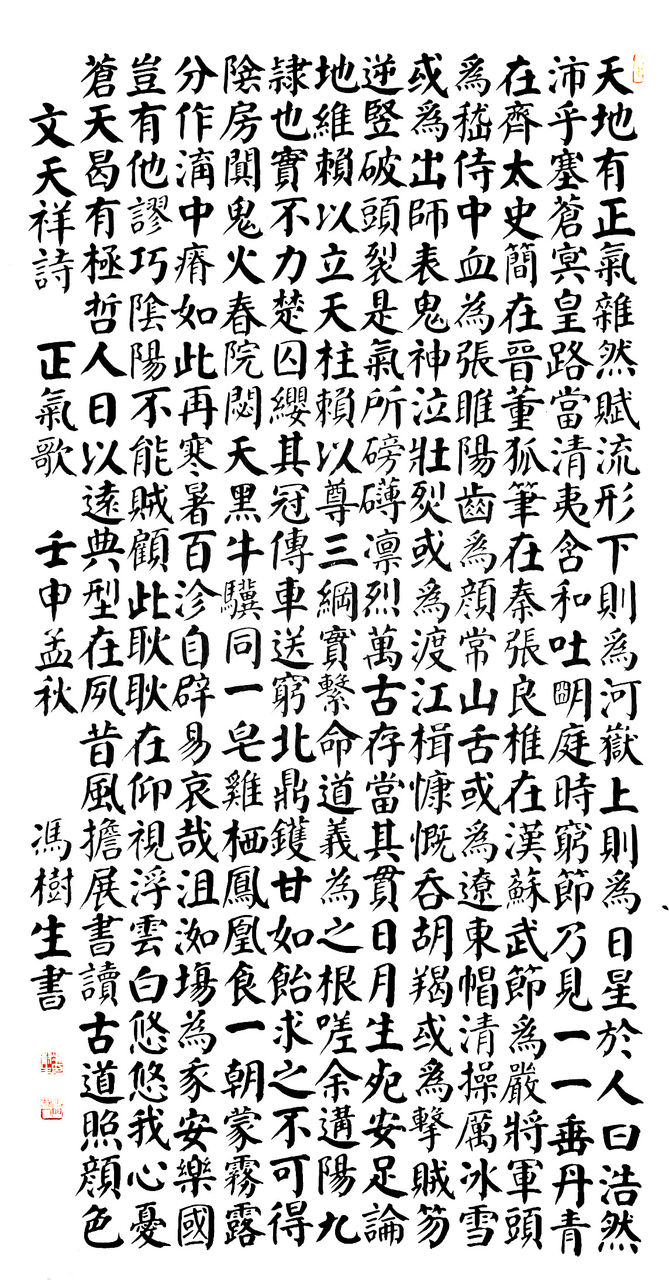 天地有正氣雜然賦流形下則爲河嶽上則爲日星於人曰浩然
沛乎塞蒼冥皇路當清夷含和吐明庭時窮節乃見一一垂丹青
在齊太史簡在晉董狐筆在秦張良椎在漢蘇武節爲嚴將軍頭
爲嵇侍中血為張睢陽齒爲顔常山舌或爲遼東帽清操厲冰雪
或爲出師表鬼神泣壯烈或爲渡江楫慷慨吞胡羯或爲擊賊笏
逆竪破頭裂是氣所磅礴凛烈萬古存當其貫日月生死安足論
地維賴以立天柱賴以尊三綱實繫命道義為之根嗟余遘陽九
隸也實不力楚囚纓其冠傳車送窮北鼎鑊甘如飴求之不可得
陰房闃鬼火春院閟天黑牛驥同一皂雞栖鳳凰食一朝蒙霧露
分作溝中瘠如此再寒暑百沴自辟易哀哉沮洳塲為豕安樂國
豈有他謬巧陰陽不能賊顧此耿耿在仰視浮雲白悠悠我心憂
蒼天曷有極哲人日以遠典型在夙昔風擔展書讀古道照顔色
文天祥詩 正氣歌 壬申孟秋 馮樹生書